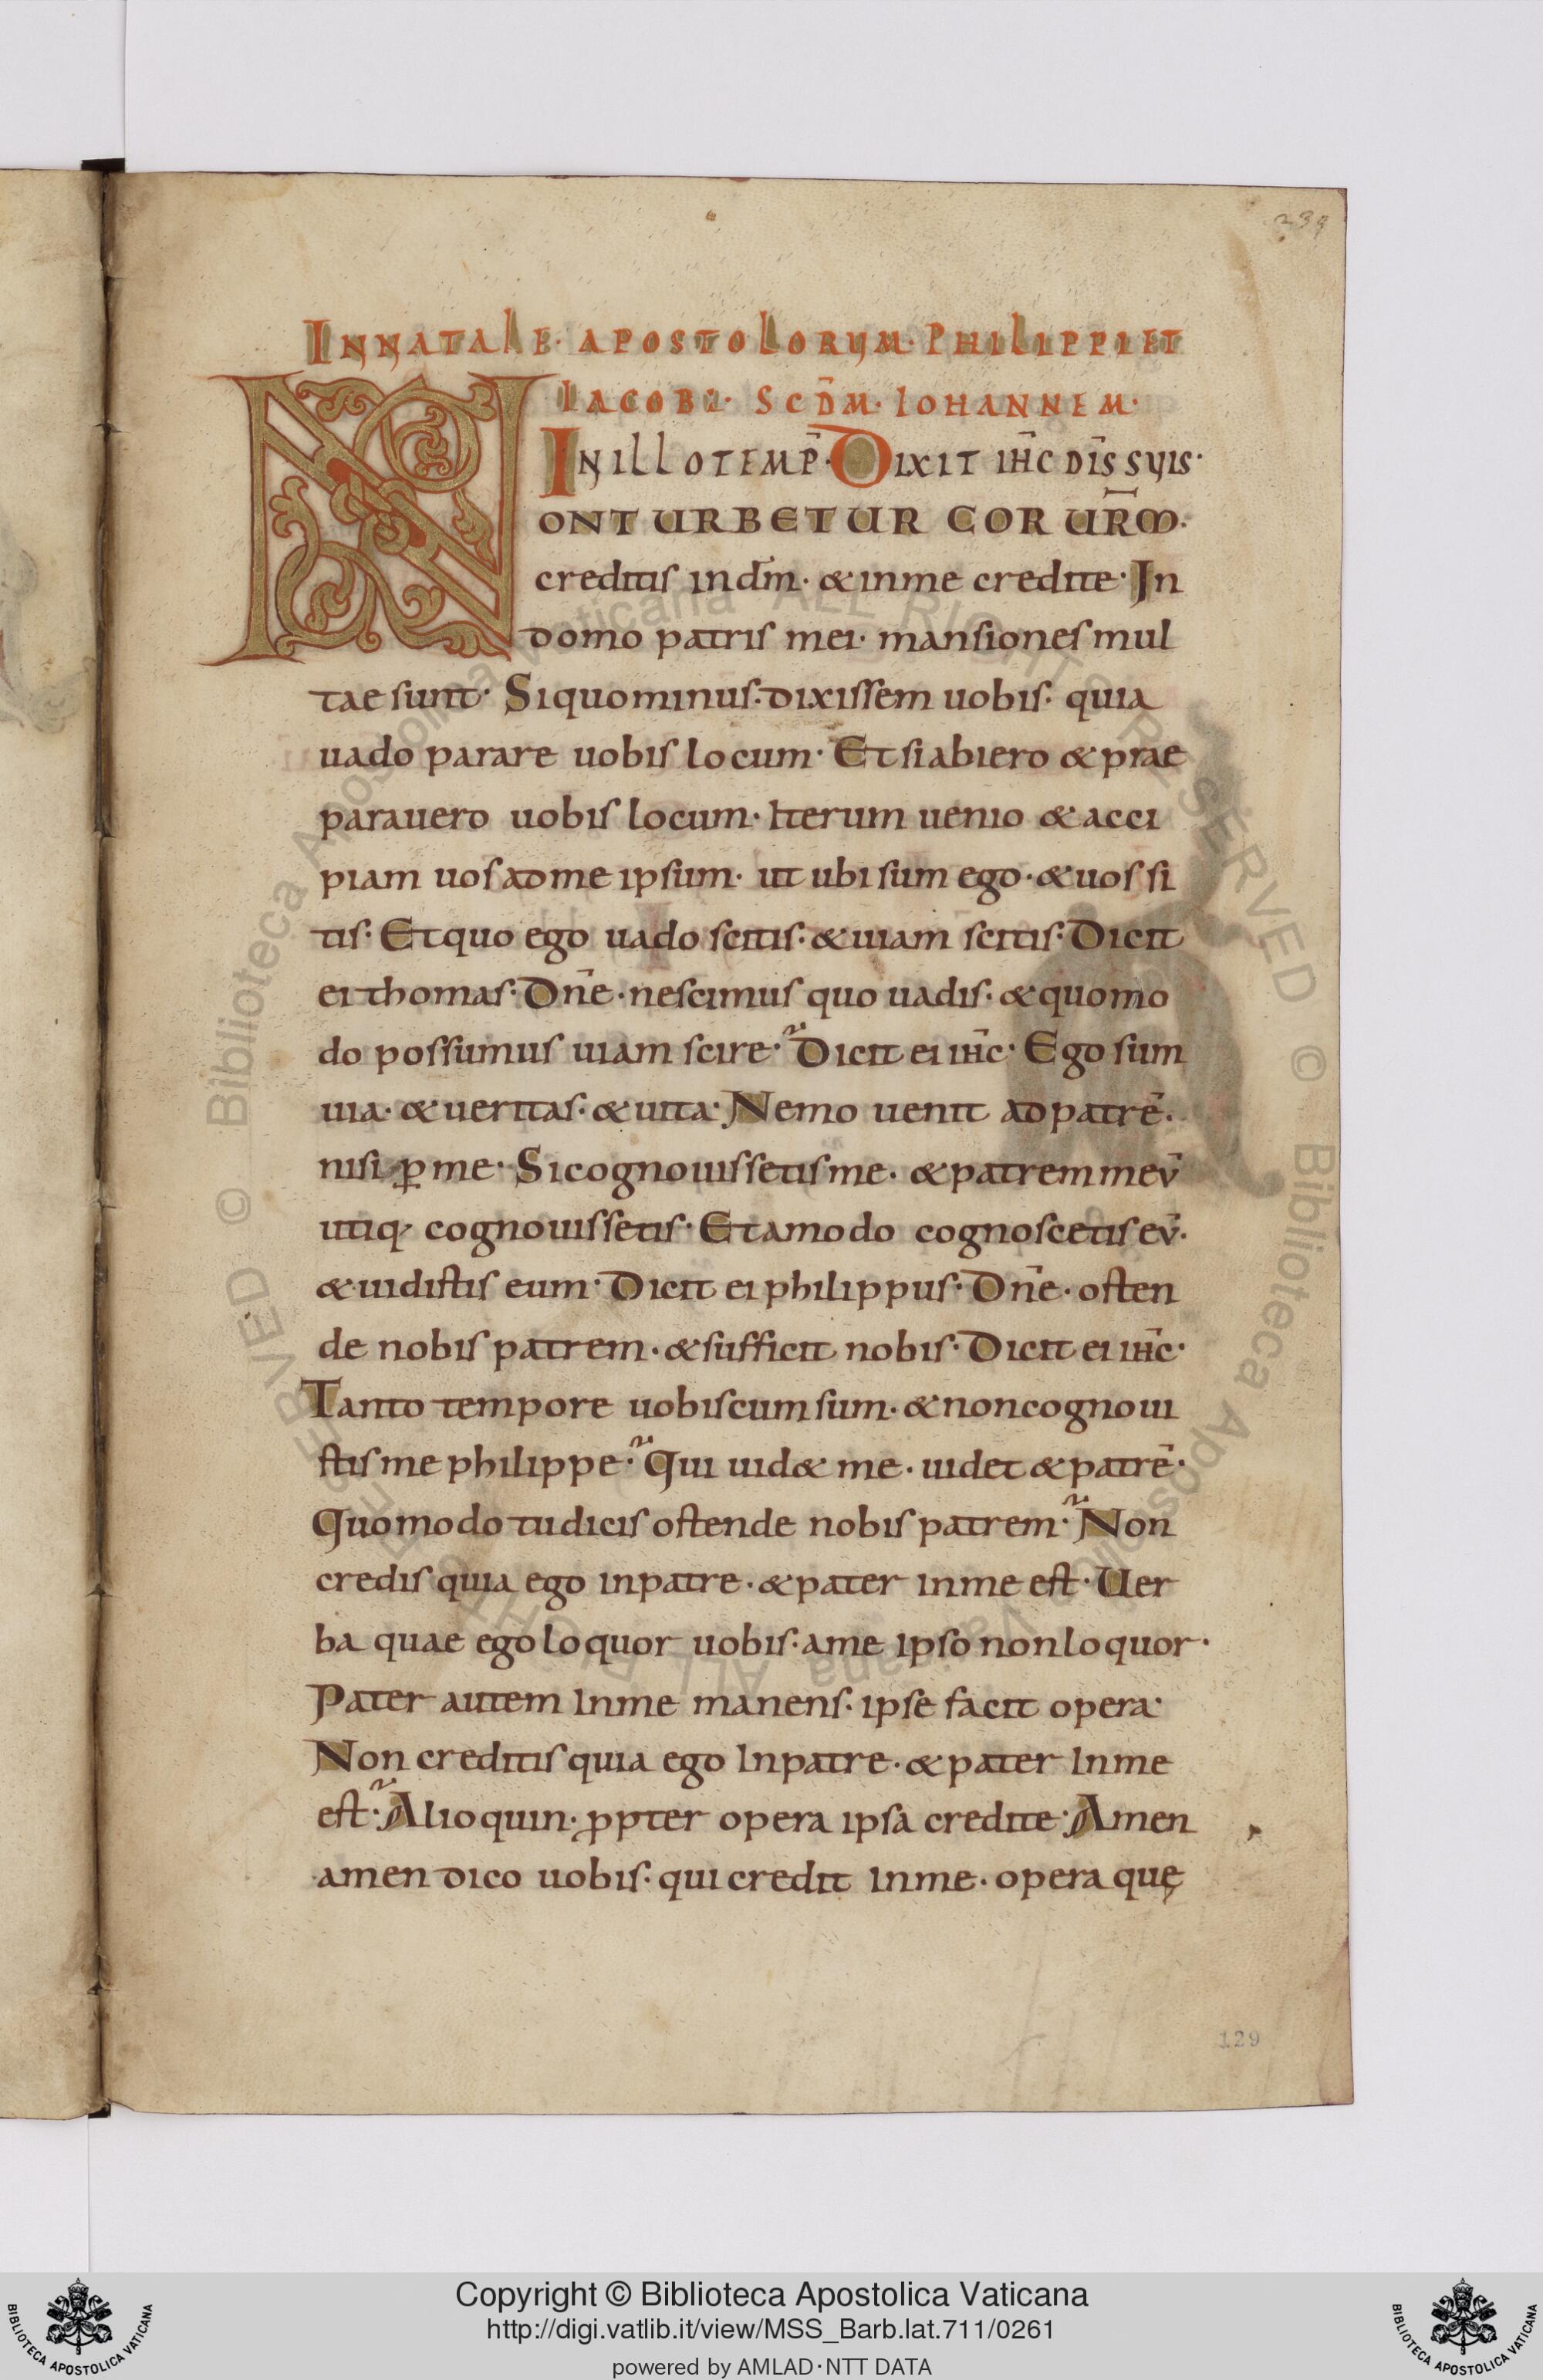 239
INNATALE· APOSTOLORUM· PHILIPPI ET
IACOBI· SCD̄M· IOHANNEM·
IN ILLO TEMP̄· DIXIT IH̄C DIS̄ SUIS·
NON TURBETUR COR UR̄M·
creditis in dm̄· & in me credite· In
domo patris mei· mansiones mul
tae sunt· Si quo minus· dixissem uobis· quia
uado parare uobis locum· Et si abiero & prae
parauero uobis locum· Iterum uenio & acci
piam uos ad me ipsum· ut ubi sum ego· & uos si
tis· Et quo ego uado scitis· & uiam scitis· Dicit
ei thomas· Dn̄e· nescimus quo uadis· & quomo
do possumus uiam scire· Dicit ei ih̄c· Ego sum
uia· & ueritas· & uita· Nemo uenit ad patrē·
nisi ꝑ me· Si cognouissetis me· & patrem meū
utiq; cognouissetis· Et amodo cognoscetis eū·
& uidistis eum· Dicit ei philippus· Dn̄e· osten
de nobis patrem· & sufficit nobis· Dicit ei ih̄c·
Tanto tempore uobiscum sum· & non cognoui
stis me philippe· Qui uid& me· uidet & patrē·
Quomodo tu dicis ostende nobis patrem· Non
credis quia ego in patre· & pater in me est· Uer
ba quae ego loquor uobis· a me ipso non loquor·
Pater autem in me manens· ipse facit opera·
Non creditis quia ego in patre· & pater in me
est· Alioquin· ꝓpter opera ipsa credite· Amen
amen dico uobis· qui credit in me· opera quę
129
Copyright © Biblioteca Apostolica Vaticana
http://digi.vatlib.it/view/MSS_Barb.lat.711/0261
powered by AMLAD·NTT DATA
BIBLIOTECA APOSTOLICA VATICANA
BIBLIOTECA APOSTOLICA VATICANA
© Biblioteca Apostolica Vaticana ALL RIGHTS RESERVED © Biblioteca Apostolica Vaticana ALL RIGHTS RESERVED